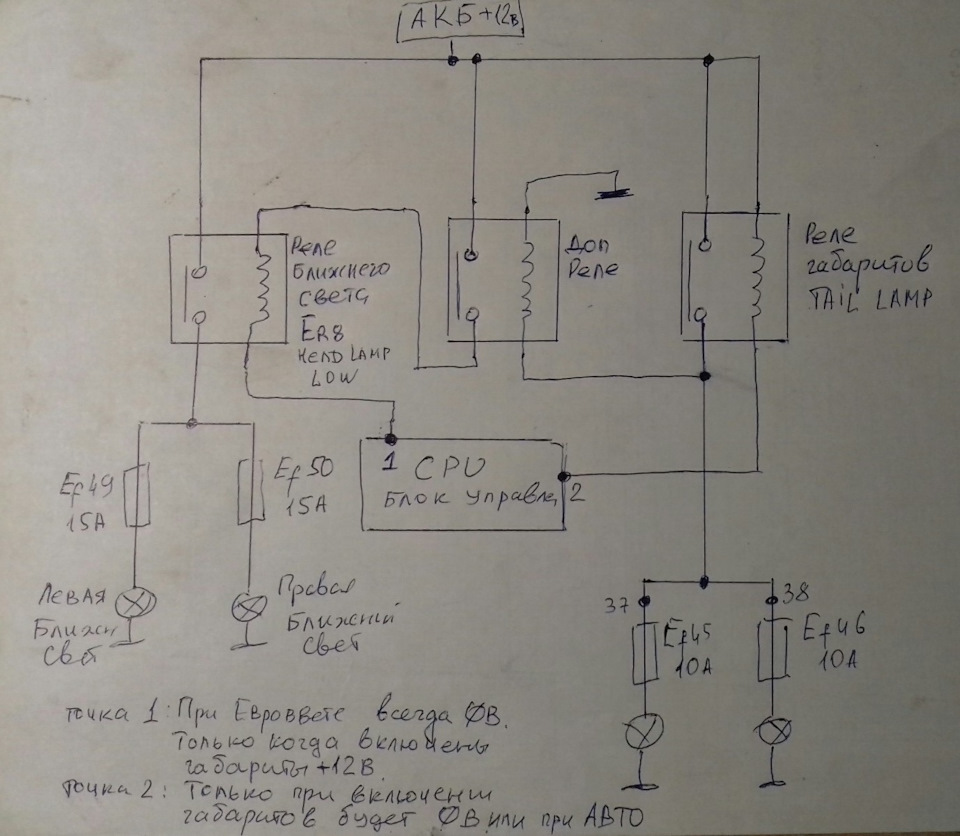 АКБ+12В
Реле
Ближнего
света
ER8
HEAD LAMP
LOW
Доп
Реле
Реле
габаритов
TAIL LAMP
1
CPU
2
Блок управлен
Ef49
15А
Ef50
15А
Левая
Ближн
свет
Правая
Ближний
свет
37
38
Ef45
10А
Ef46
10А
точка 1: При Евросвете всегда 0В.
Только когда включены
габариты +12В.
точка 2: Только при включении
габаритов будет 0В или при АВТО